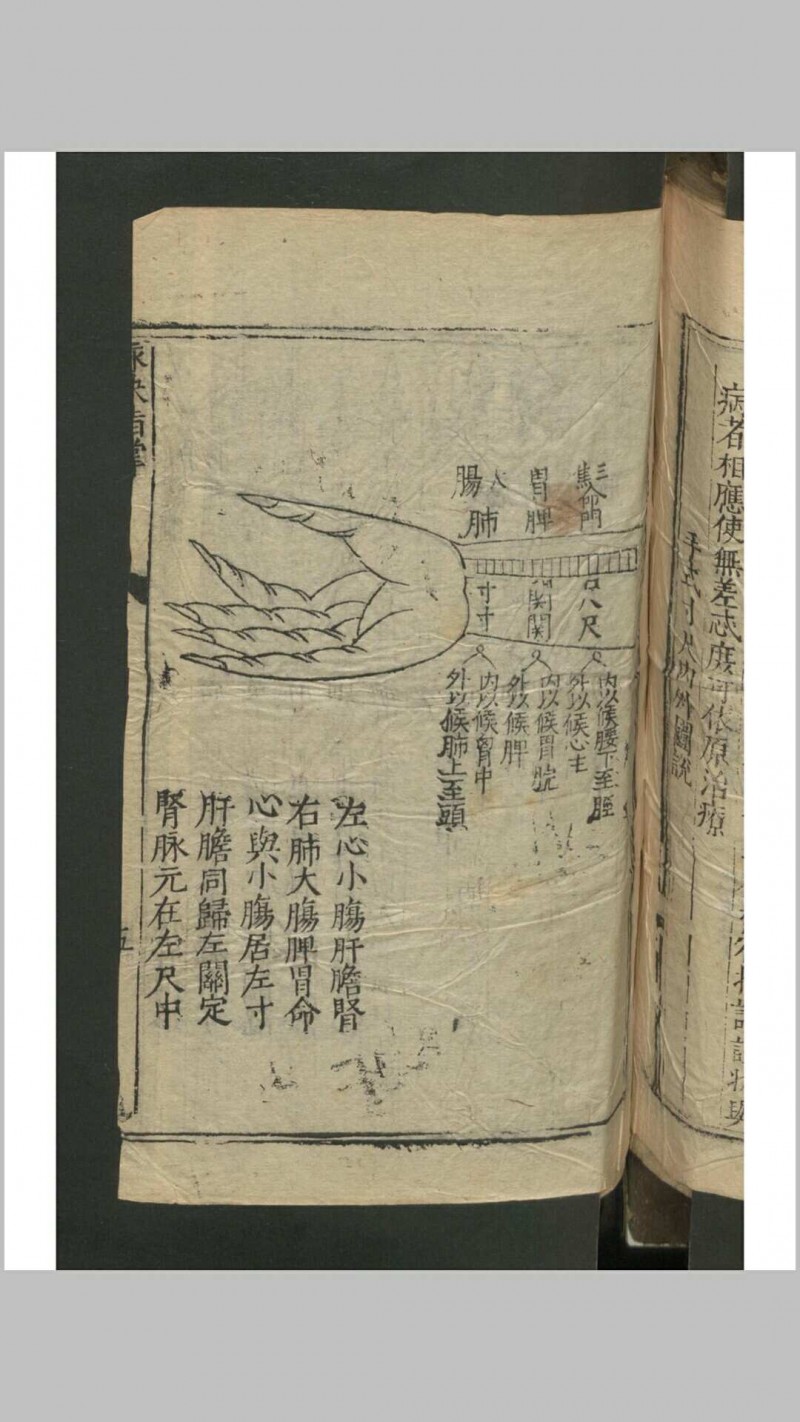 病者相應使無差忒庶可依原治療
手式寸尺內外圖說
三焦命門
胃脾
大腸肺
尺
関関
寸寸
內以候腰下至脛
外以候心主
內以候胃脘
外以候脾
內以候胷中
外以候肺上至頭
左心小膓肝膽腎
右肺大膓脾胃命
心與小膓居左寸
肝膽同歸左關定
腎脉元在左尺中
五